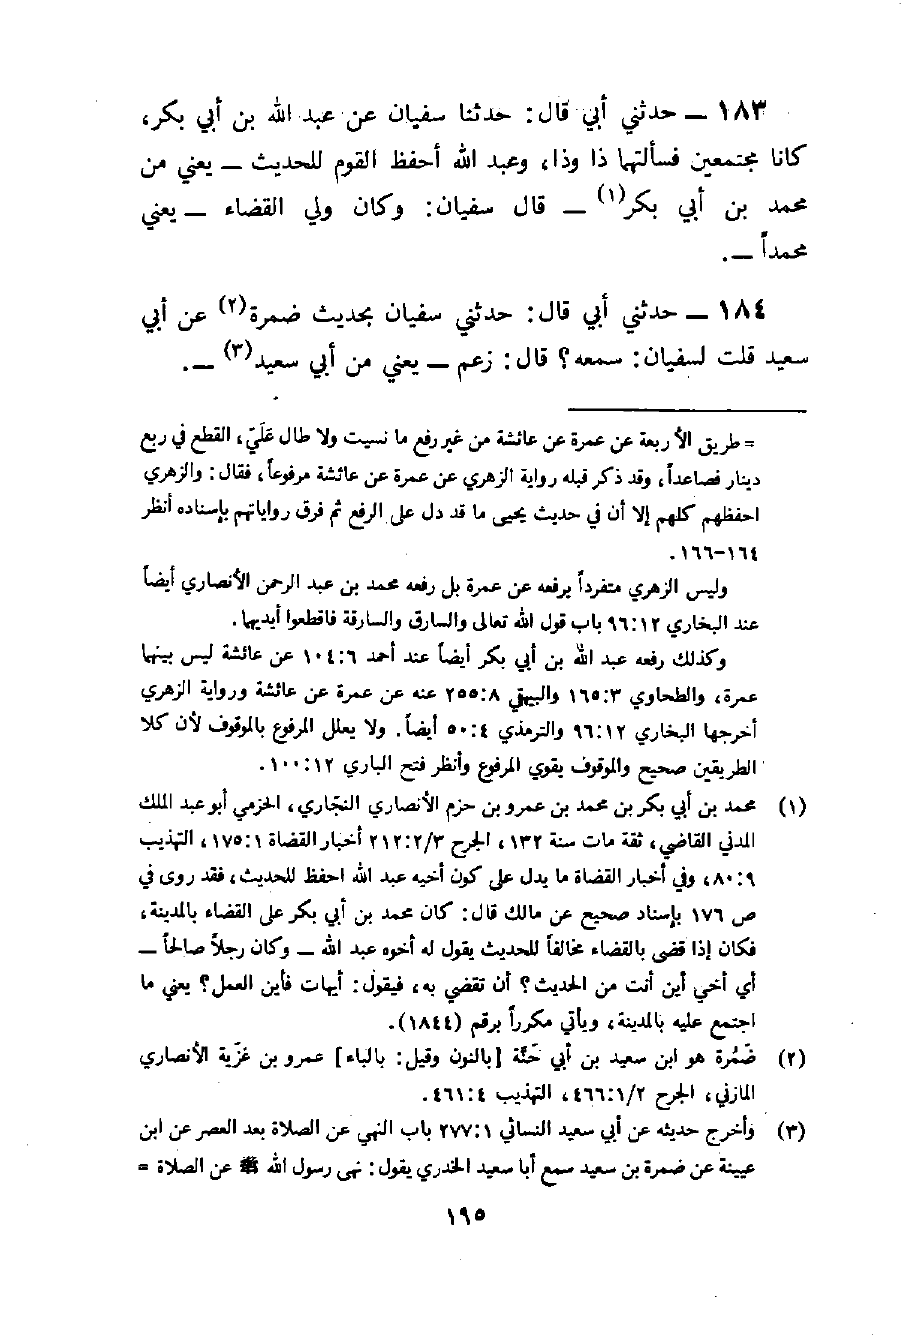 ١٨٣ ــ حدثني أبي قال: حدثنا سفيان عن عبد الله بن أبي بكر،
كانا مجتمعين فسألتهما ذا وذا، وعبد الله أحفظ القوم للحديث ــ يعني من
محمد بن أبي بكر(١) ــ قال سفيان: وكان ولي القضاء ــ يعني
محمداً ــ.
١٨٤ ــ حدثني أبي قال: حدثني سفيان بحديث ضمرة(٢) عن أبي
سعيد قلت لسفيان: سمعه؟ قال: زعم ــ يعني من أبي سعيد(٣) ــ.
= طريق الأربعة عن عمرة عن عائشة من غير رفع ما نسيت ولا طال عَلَيّ، القطع في ربع
دينار فصاعداً، وقد ذكر قبله رواية الزهري عن عمرة عن عائشة مرفوعاً، فقال: والزهري
احفظهم كلهم إلا أن في حديث يحيى ما قد دل على الرفع ثم فرق رواياتهم بإسناده أنظر
١٦٤-١٦٦.
وليس الزهري متفرداً يرفعه عن عمرة بل رفعه محمد بن عبد الرحمن الأنصاري أيضاً
عند البخاري ٩٦:١٢ باب قول الله تعالى والسارق والسارقة فاقطعوا أيديهما.
وكذلك رفعه عبد الله بن أبي بكر أيضاً عند أحمد ١٠٤:٦ عن عائشة ليس بينهما
عمرة، والطحاوي ١٦٥:٣ والبيهقي ٢٥٥:٨ عنه عن عمرة عن عائشة ورواية الزهري
أخرجها البخاري ٩٦:١٢ والترمذي ٥٠:٤ أيضاً. ولا يعلل المرفوع بالموقوف لأن كلا
الطريقين صحيح والموقوف يقوي المرفوع وأنظر فتح الباري ١٠٠:١٢.
(١) محمد بن أبي بكر بن محمد بن عمرو بن حزم الأنصاري النجّاري، الحزمي أبو عبد الملك
المدني القاضي، ثقة مات سنة ١٣٢، الجرح ٢١٢:٢/٣ أخبار القضاة ١٧٥:١، التهذيب
٨٠:٩، وفي أخبار القضاة ما يدل على كون أخيه عبد الله احفظ للحديث، فقد روى في
ص ١٧٦ بإسناد صحيح عن مالك قال: كان محمد بن أبي بكر على القضاء بالمدينة،
فكان إذا قضى بالقضاء مخالفاً للحديث يقول له أخوه عبد الله ــ وكان رجلاً صالحاً ــ
أي أخي أين أنت من الحديث؟ أن تقضي به، فيقول: أيهات فأين العمل؟ يعني ما
اجتمع عليه بالمدينة، ويأتي مكرراً برقم (١٨٤٤).
(٢) ضَمُرة هو ابن سعيد بن أبي حَنّة [بالنون وقيل: بالباء] عمرو بن غزّية الأنصاري
المازني، الجرح ٤٦٦:١/٢، التهذيب ٤٦١:٤.
(٣) وأخرج حديثه عن أبي سعيد النسائي ٢٧٧:١ باب النهي عن الصلاة بعد العصر عن ابن
عيينة عن ضمرة بن سعيد سمع أبا سعيد الخدري يقول: نهى رسول الله ﷺ عن الصلاة =
١٩٥